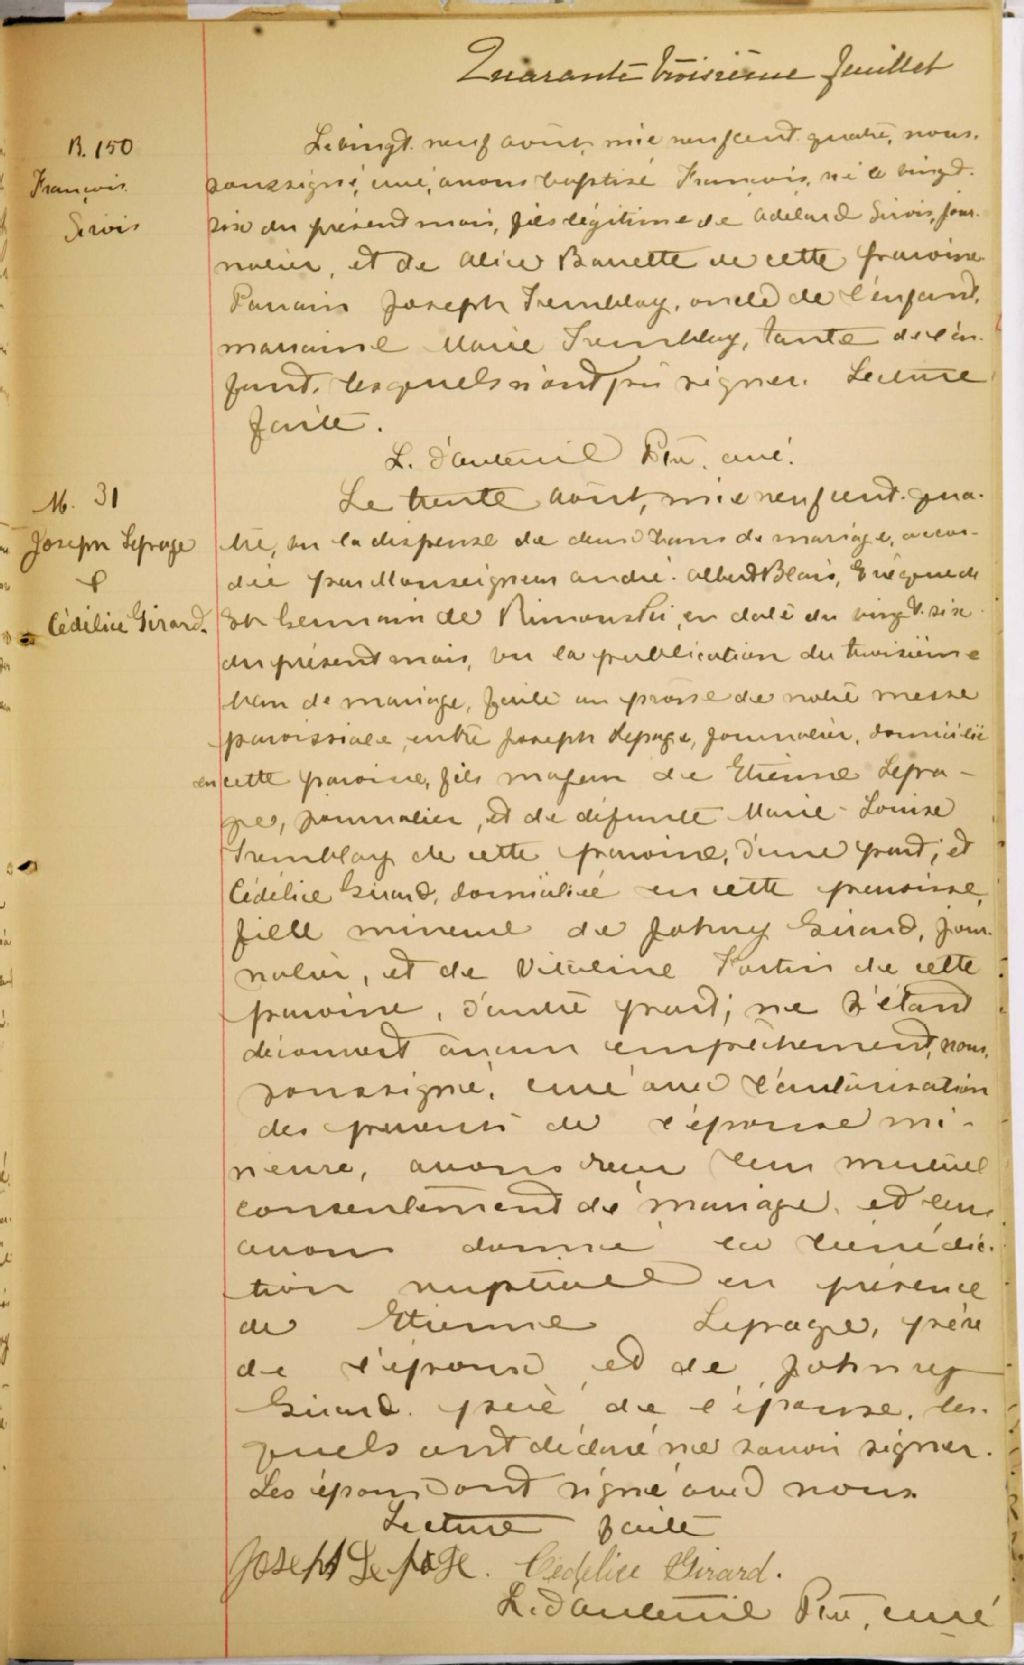 Quarante troisième feuillet
B. 150
François
Sirois
Le vingt neuf août, mil neuf cent quatre, nous,
soussigné, curé, avons baptisé François, né le vingt-
six du présent mois, fils légitime de Adelard Sirois, jour-
nalier, et de Alice Banette de cette paroisse.
Parrain Joseph Tremblay, oncle de l'enfant,
marraine Marie Tremblay, tante de l'en-
fant, lesquels n'ont pu signer. Lecture
faite.
L. d'auteuil Ptre, curé.
M. 31
Joseph Lepage
&
Cédélice Girard.
Le trente août, mil neuf cent qua-
tre, vu la dispense de deux bans de mariage, accor-
dée par Monseigneur André-Albert Blais, Evêque de
St Germain de Rimouski, en date du vingt-six
du présent mois, vu la publication du troisième
ban de mariage, faite au prône de notre messe
paroissiale, entre Joseph Lepage, journalier, domicilié
en cette paroisse, fils majeur de Etienne Lepa-
ge, journalier, et de défunte Marie-Louise
Tremblay de cette paroisse, d'une part; et
Cédélice Girard, domiciliée en cette paroisse,
fille mineure de Johny Girard, jour-
nalier, et de Vitaline Fortin de cette
paroisse, d'autre part; ne s'étant
découvert aucun empêchement, nous,
soussigné, curé avec l'autorisation
des parents de l'épouse mi-
neure, avons reçu leur mutuel
consentement de mariage, et leur
avons donné la bénédic-
tion nuptiale en présence
de Etienne Lepage, père
de l'époux et de Johnny
Girard père de l'épouse, les-
quels ont déclaré ne savoir signer.
Les époux ont signé avec nous.
Lecture faite
Joseph Lepage. Cédélice Girard.
L. d'auteuil Ptre, curé